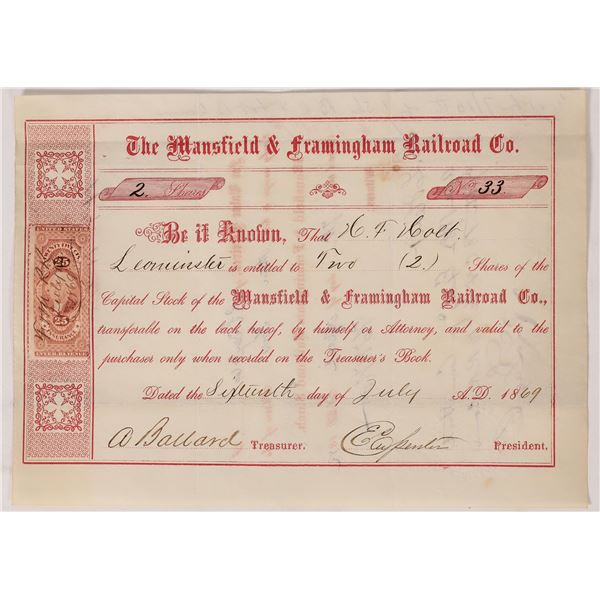 The Mansfield & Framingham Railroad Co.
2. Shares
No. 33.
Be it Known, That H. F. Holt.
Leominster is entitled to Two (2.) Shares of the
Capital Stock of the Mansfield & Framingham Railroad Co.,
transferable on the back hereof, by himself or Attorney, and valid to the
purchaser only when recorded on the Treasurer's Book.
Dated the Sixteenth day of July A.D. 1869
A Ballard Treasurer. E Carpenter President.
UNITED STATES
25 25
INSURANCE
INTER. REVENUE